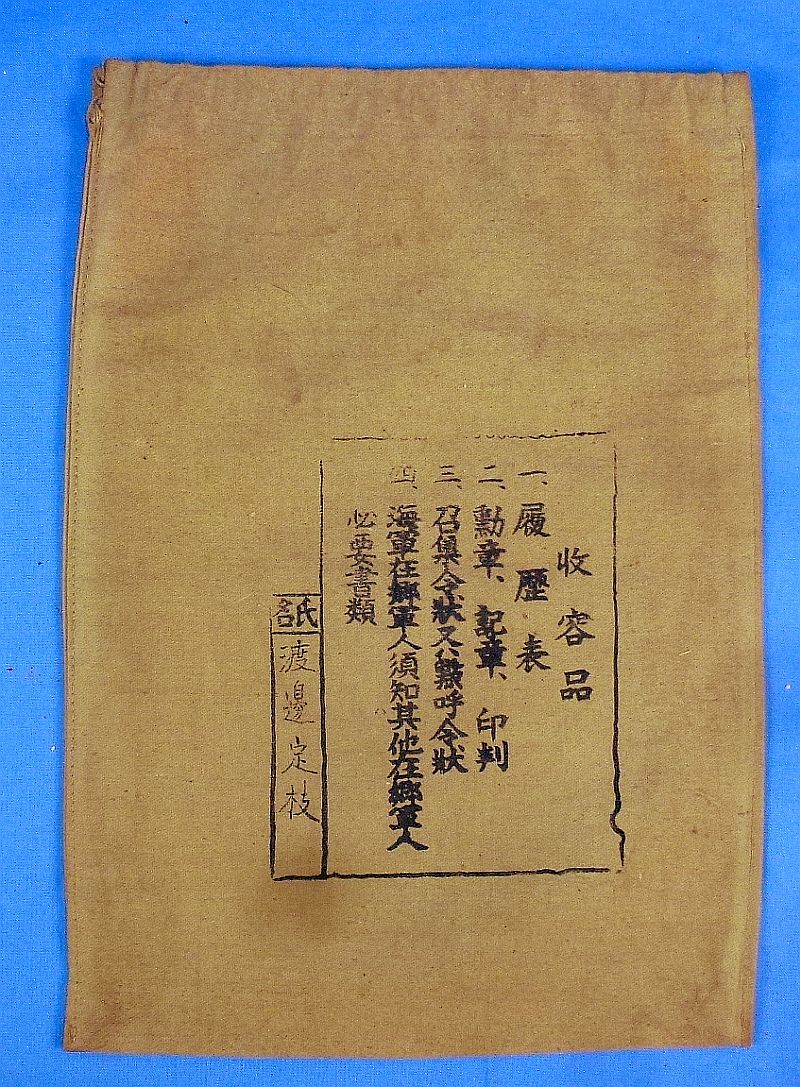 收容品
一、履歷表
二、勳章、記章、印判
三、召集令狀又ハ點呼令狀
四、海軍在鄉軍人須知其他在鄉軍人
必要書類
氏名
渡邊定枝